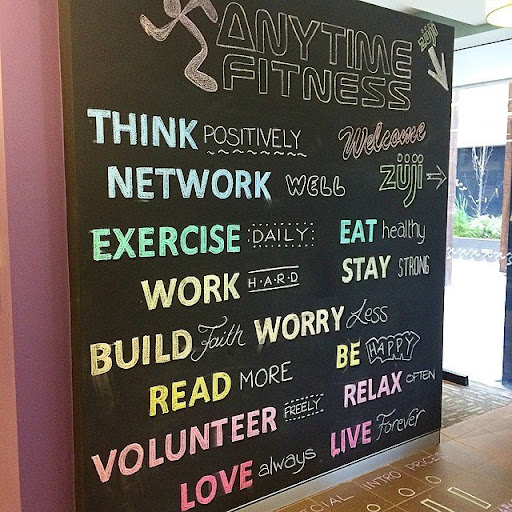 ANYTIME
FITNESS
züji
THINK POSITIVELY
Welcome
NETWORK WELL
züji
EXERCISE DAILY
EAT healthy
WORK HARD
STAY STRONG
BUILD Faith WORRY Less
READ MORE
BE HAPPY
VOLUNTEER FREELY
RELAX OFTEN
LOVE always
LIVE Forever
INTRO